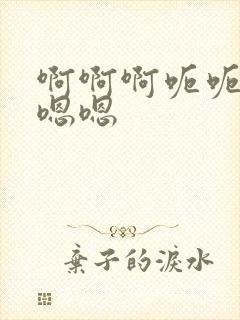 啊啊啊呃呃
嗯嗯
棄子的淚水